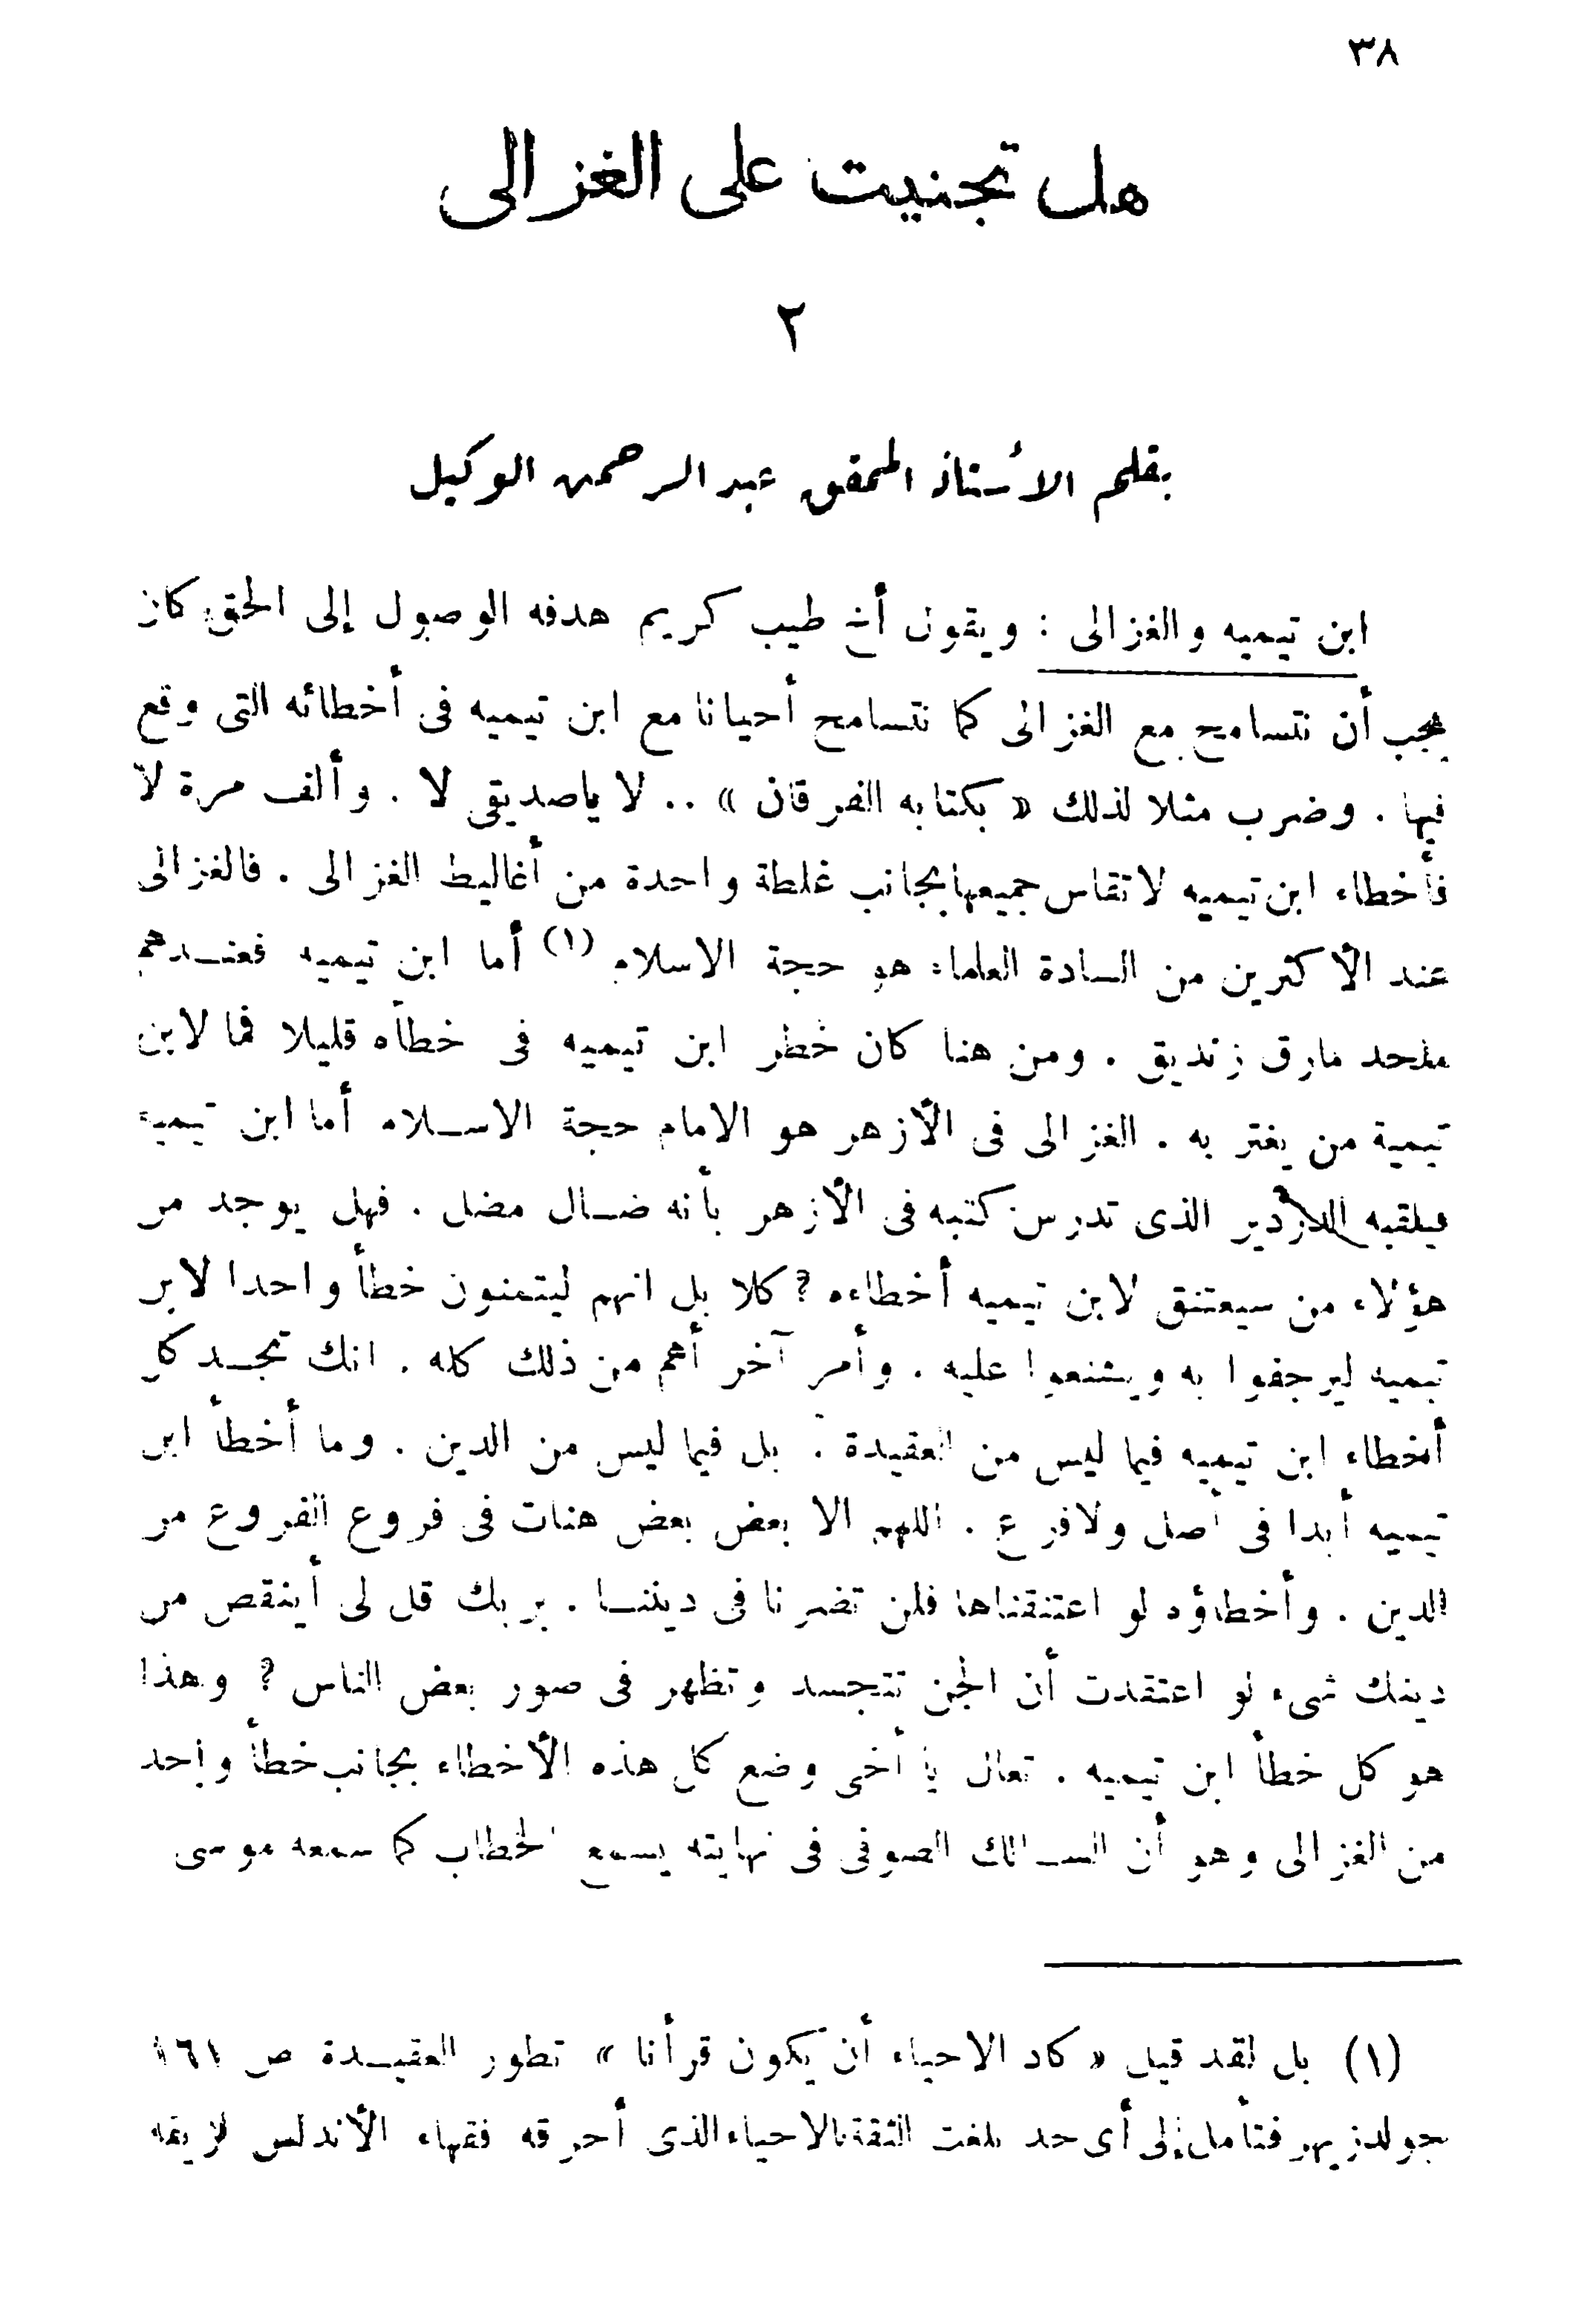 ٣٨
هل تجنيت على الغزالى
٢
بقلم الأستاذ المحقق عبد الرحمن الوكيل
ابن تيميه والغزالى : ويقول أخ طيب كريم هدفه الوصول إلى الحق كان
يجب أن نتسامح مع الغزالى كما نتسامح أحيانا مع ابن تيميه فى أخطائه التى وقع
فيها . وضرب مثلا لذلك « بكتابه الفرقان » .. لا ياصديقى لا . وألف مرة لا
فأخطاء ابن تيميه لاتقاس جميعها بجانب غلطة واحدة من أغاليط الغزالى . فالغزالى
عند الأكثرين من السادة العلماء هو حجة الاسلام (١) أما ابن تيميه فعنـدهم
ملحد مارق زنديق . ومن هنا كان خطر ابن تيميه فى خطأه قليلا فما لابن
تيمية من يغتر به . الغزالى فى الأزهر هو الامام حجة الاسـلام أما ابن تيميه
فيلقبه الدردير الذى تدرس كتبه فى الأزهر بأنه ضـال مضل . فهل يوجد من
هؤلاء من سيعتنق لابن تيميه أخطاءه ? كلا بل انهم ليتمنون خطأ واحدا لابن
تيميه ليرجفوا به ويشنعوا عليه . وأمر آخر أهم من ذلك كله . انك تجـد كل
أخطاء ابن تيميه فيما ليس من العقيدة . بل فيما ليس من الدين . وما أخطأ ابن
تيميه أبدا فى أصل ولافرع . اللهم الا بعض بعض هنات فى فروع الفروع من
الدين . وأخطاؤه لو اعتنقناها فلن تضرنا فى ديننـا . بربك قل لى أينقص من
دينك شىء لو اعتقدت أن الجن تتجسد وتظهر فى صور بعض الناس ? وهذا
هو كل خطأ ابن تيميه . تعال يا أخى وضع كل هذه الأخطاء بجانب خطأ واحد
من الغزالى وهو أن السـالك الصوفى فى نهايته يسمع الخطاب كما سمعه موسى
(١) بل لقد قيل « كاد الاحياء أن يكون قرأنا » تطور العقيـدة ص ١٦١
جولدزيهر فتأمل إلى أى حد بلغت الثقة بالاحياء الذى أحرقه فقهاء الأندلس لزيغه